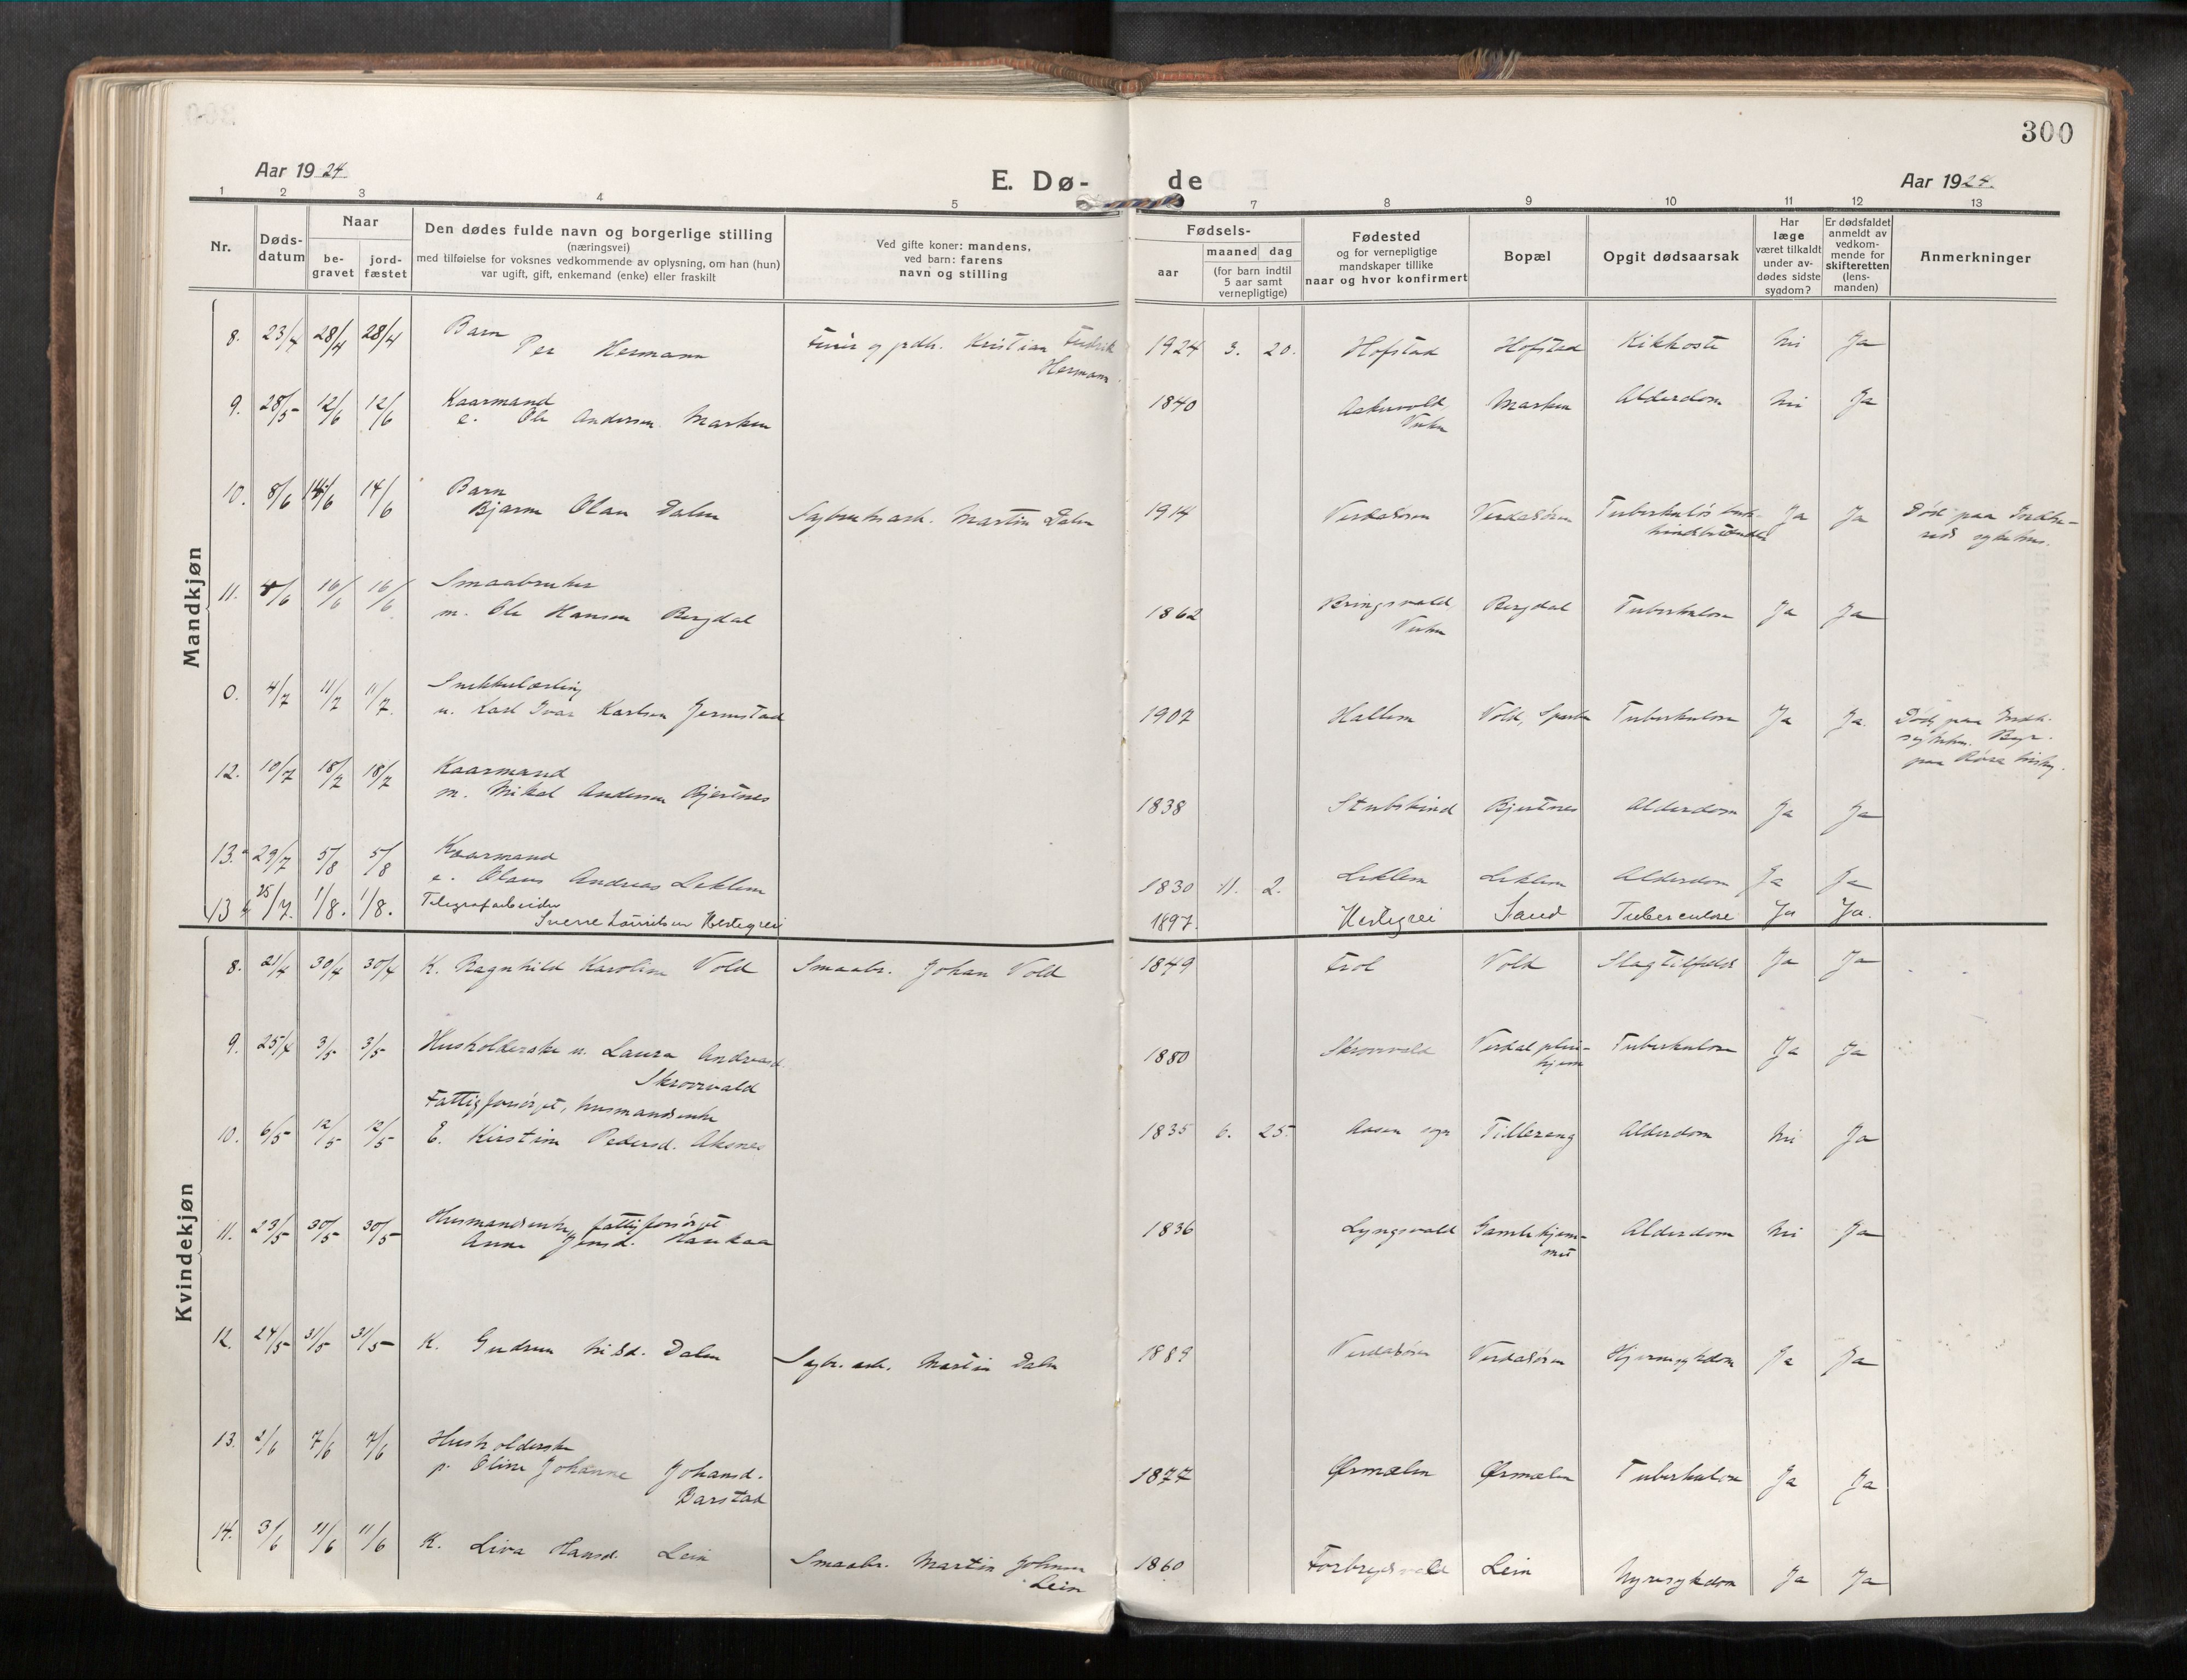 300
Aar 1924
E. Dø-
de
Aar 1924.
1 2 3 4 5 7 8 9 10 11 12 13
Nr.
Døds-
datum
Naar
be-
gravet
jord-
fæstet
Den dødes fulde navn og borgerlige stilling
(næringsvei)
med tilføielse for voksnes vedkommende av oplysning, om han (hun)
var ugift, gift, enkemand (enke) eller fraskilt
Ved gifte koner: mandens,
ved barn: farens
navn og stilling
Fødsels-
aar
maaned dag
(for barn indtil
5 aar samt
vernepligtige)
Fødested
og for vernepligtige
mandskaper tillike
naar og hvor konfirmert
Bopæl
Opgit dødsaarsak
Har
læge
været tilkaldt
under av-
dødes sidste
sygdom?
Er dødsfaldet
anmeldt av
vedkom-
mende for
skifteretten
(lens-
manden)
Anmerkninger
Mandkjøn
8. 23/4 28/4 28/4 Barn
Per Hermann
Kristian Fredrik
Hermann
1924 3. 20. Hofstad Hofstad Kikhoste Nei Ja
9. 28/5 12/6 12/6 Kaarmand
e. Ole Andersen Marken
1840 Marken Alderdom Nei Ja
10. 8/6 14/6 14/6 Barn
Bjarne Olav Dalen
Sagbruksarb. Martin Dalen
1914 Verdalsøren Verdalsøren Tuberkuløs
Ja Ja Død paa Indhe-
red sykehus.
11. 4/6 16/6 16/6 Smaabruker
m. Ole Hansen Bergdal
1862 Bringsvald,
Bergdal Tuberkulose Ja Ja
0. 4/7 11/7 11/7 Snekkerlærling
u. Karl Ivar Karlsen Jermstad
1907 Hallem Vold, Sparbu Tuberkulose Ja Ja. Død paa Indh.
sykehus. Begr.
paa
12. 10/7 18/7 18/7 Kaarmand
m. Mikal Andersen Bjertnes
1838 Stubskind Bjertnes Alderdom Ja Ja
13. 29/7 5/8 5/8 Kaarmand
e. Olaus Andreas Leklem
1830 11. 2. Leklem Leklem Alderdom Ja Ja
13 25/7. 1/8. 1/8. Telegrafarbeider
Sverre Lauritsen Hestegrei
1897. Hestegrei Sand Tuberculose Ja Ja.
Kvindekjøn
8. 21/4 30/4 30/4 K. Ragnhild Karoline Vold Smaabr. Johan Vold
1849 Frol Vold Slagtilfælde Ja Ja
9. 25/4 3/5 3/5 Husholderske u. Laura Andreasd.
Skrovvald
1880 Skrovvald Verdal pleie-
hjem
Tuberkulose Ja Ja
Fattigforsørget, husmandsenke
10. 6/5 12/5 12/5 E. Kirstine Pedersd. Aksnes
1835 6. 25. Aasen sogn Tillereng Alderdom Nei Ja
11. 23/5 30/5 30/5 Husmandsenke, fattigforsørget
Anne Jensd. Haukaa
1836 Lyngsvald Gamlehjem-
met
Alderdom Nei Ja
12. 24/5 31/5 31/5 K. Gudrun Nilsd. Dalen Sagbr. arb. Martin Dalen
1889 Verdalsøren Verdalsøren Hjernesykdom Ja Ja
13. 2/6 7/6 7/6 Husholderske
p. Oline Johanne Johansd.
Barstad
1877 Ørmælen Ørmælen Tuberkulose Ja Ja
14. 3/6 11/6 11/6 K. Liva Hansd. Lein Smaabr. Martin Johnsen
Lein
1860 Forbregdsvald Lein Nyresykdom Ja Ja